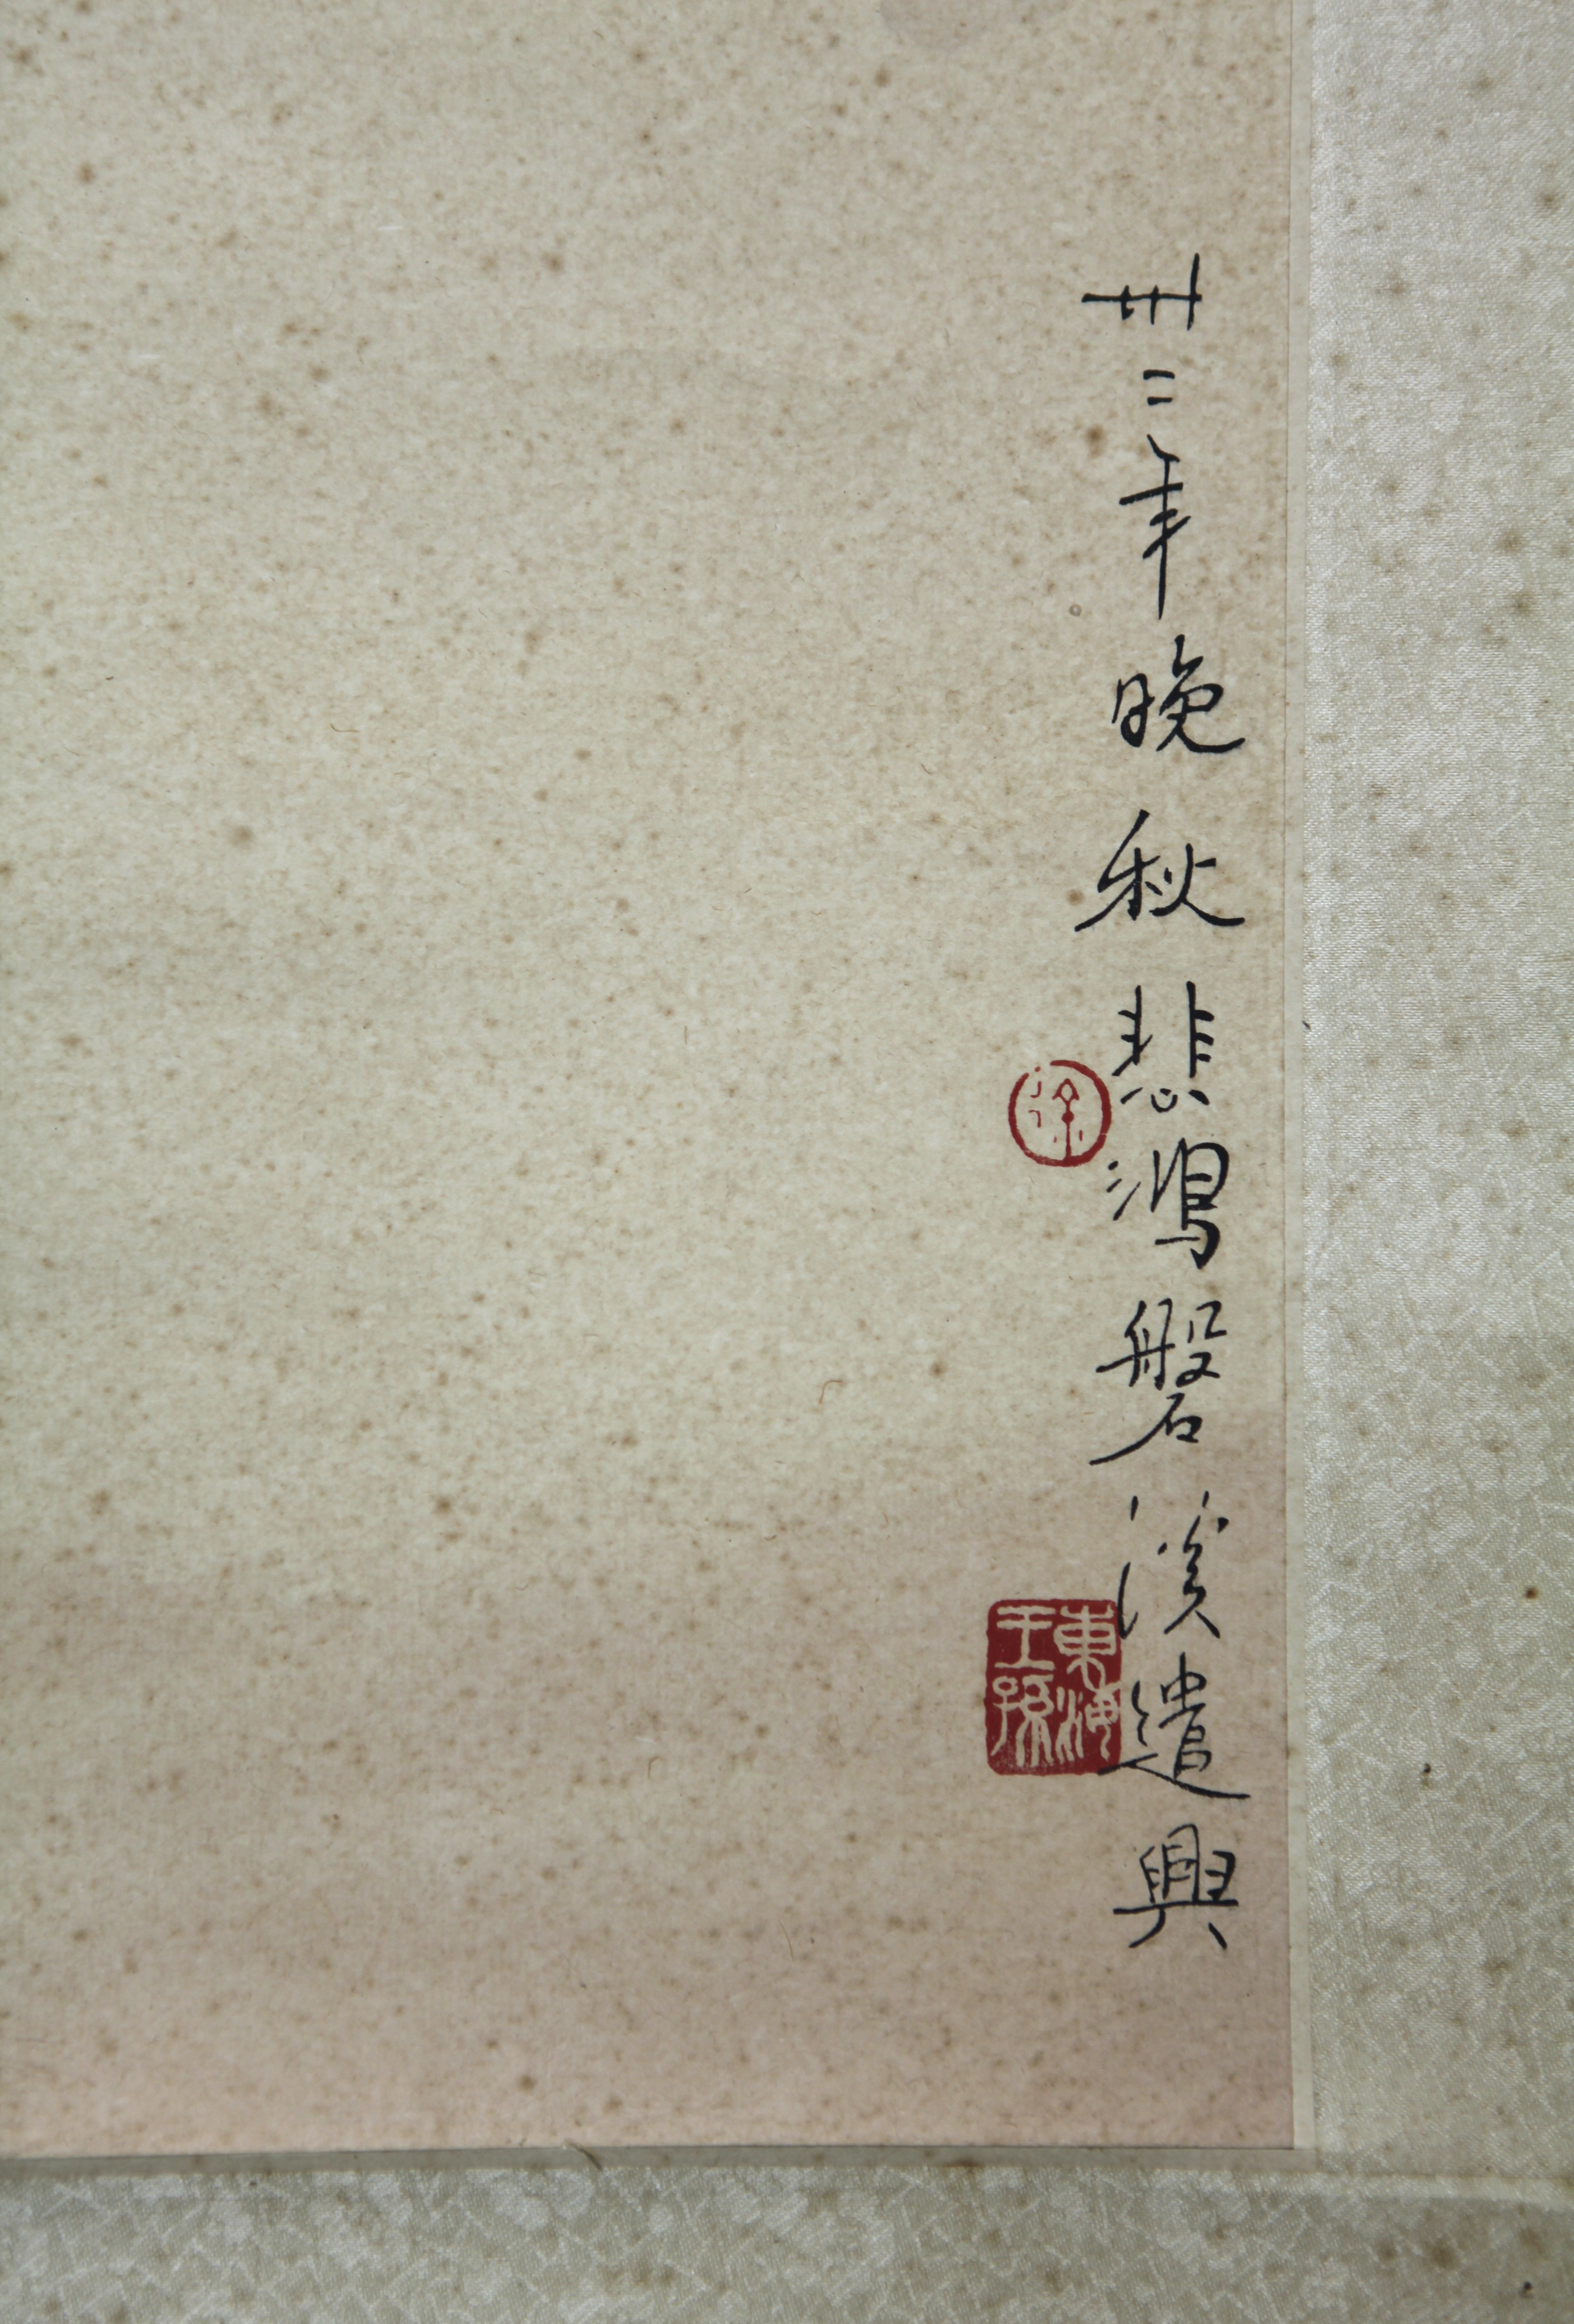 卅二年晚秋悲鴻磐溪遣興
徐
東海
王孫